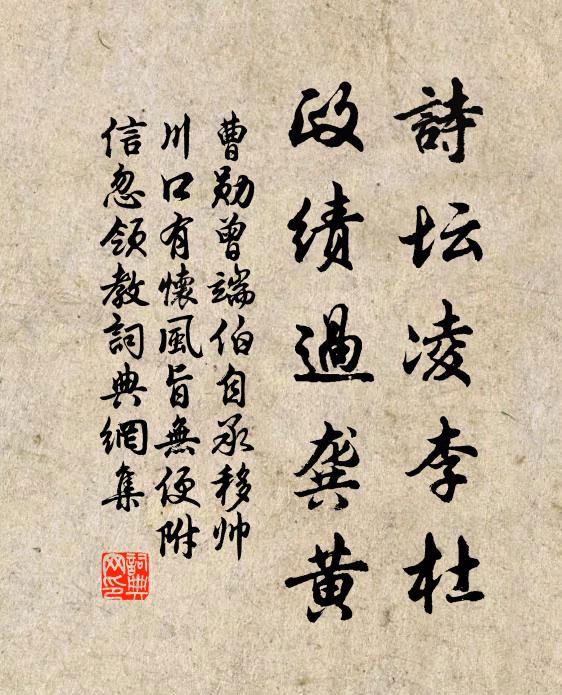 詩坛凌李杜
政绩過龚黄
曹勋曾端伯自承移帅
川口有懷風旨無便附
信忽领教詞典網集
詞典网印